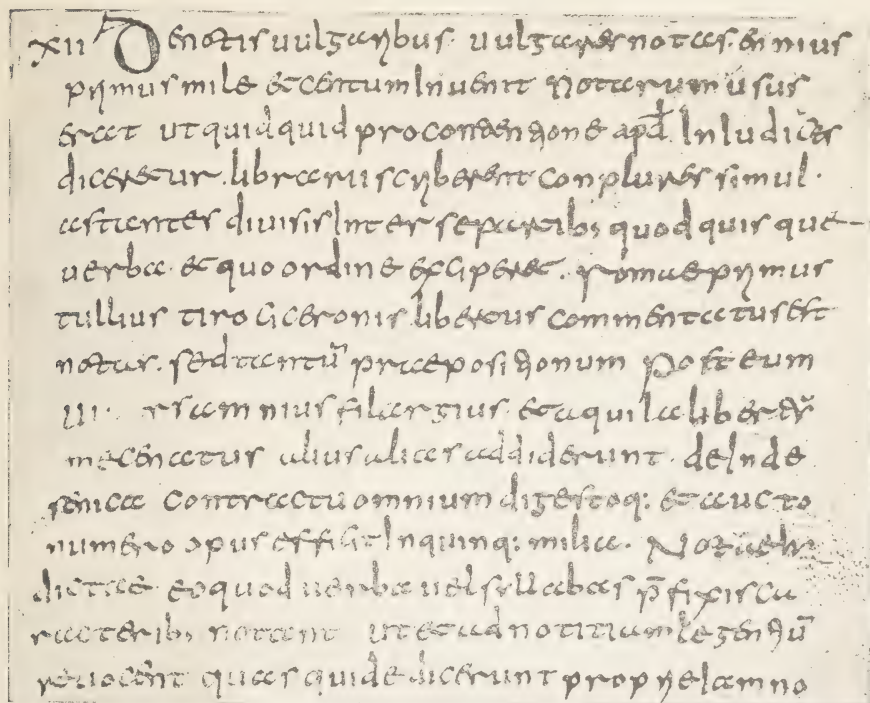 xii De notis uulgaribus. uulgares notas. ennius
primus mile et centum Inuenit Notarum usus
erat ut quidquid pro contentione apđ. In Iudices
diceretur. librarii scriberent conplures simul.
astantes diuisis Inter se partib; quod quisque
uerba et quo ordine exciperet. romae primus
tullius tiro ciceronis libertus commentatus est
notas. sed tantū praepositionum Post eum
rsamnius filargius. et aquila libert
mecenatus alius alias addiderunt. deInde
senica contractu omnium digestoq: et aucto
numero opus efficit Inquinq: milia. Notae
dictae eo quod uerba uel syllabas p̄fixis ca
racterib; notant ut et ad notitiam legentiū
reuocent quas qui dedicerunt propriae Iam no